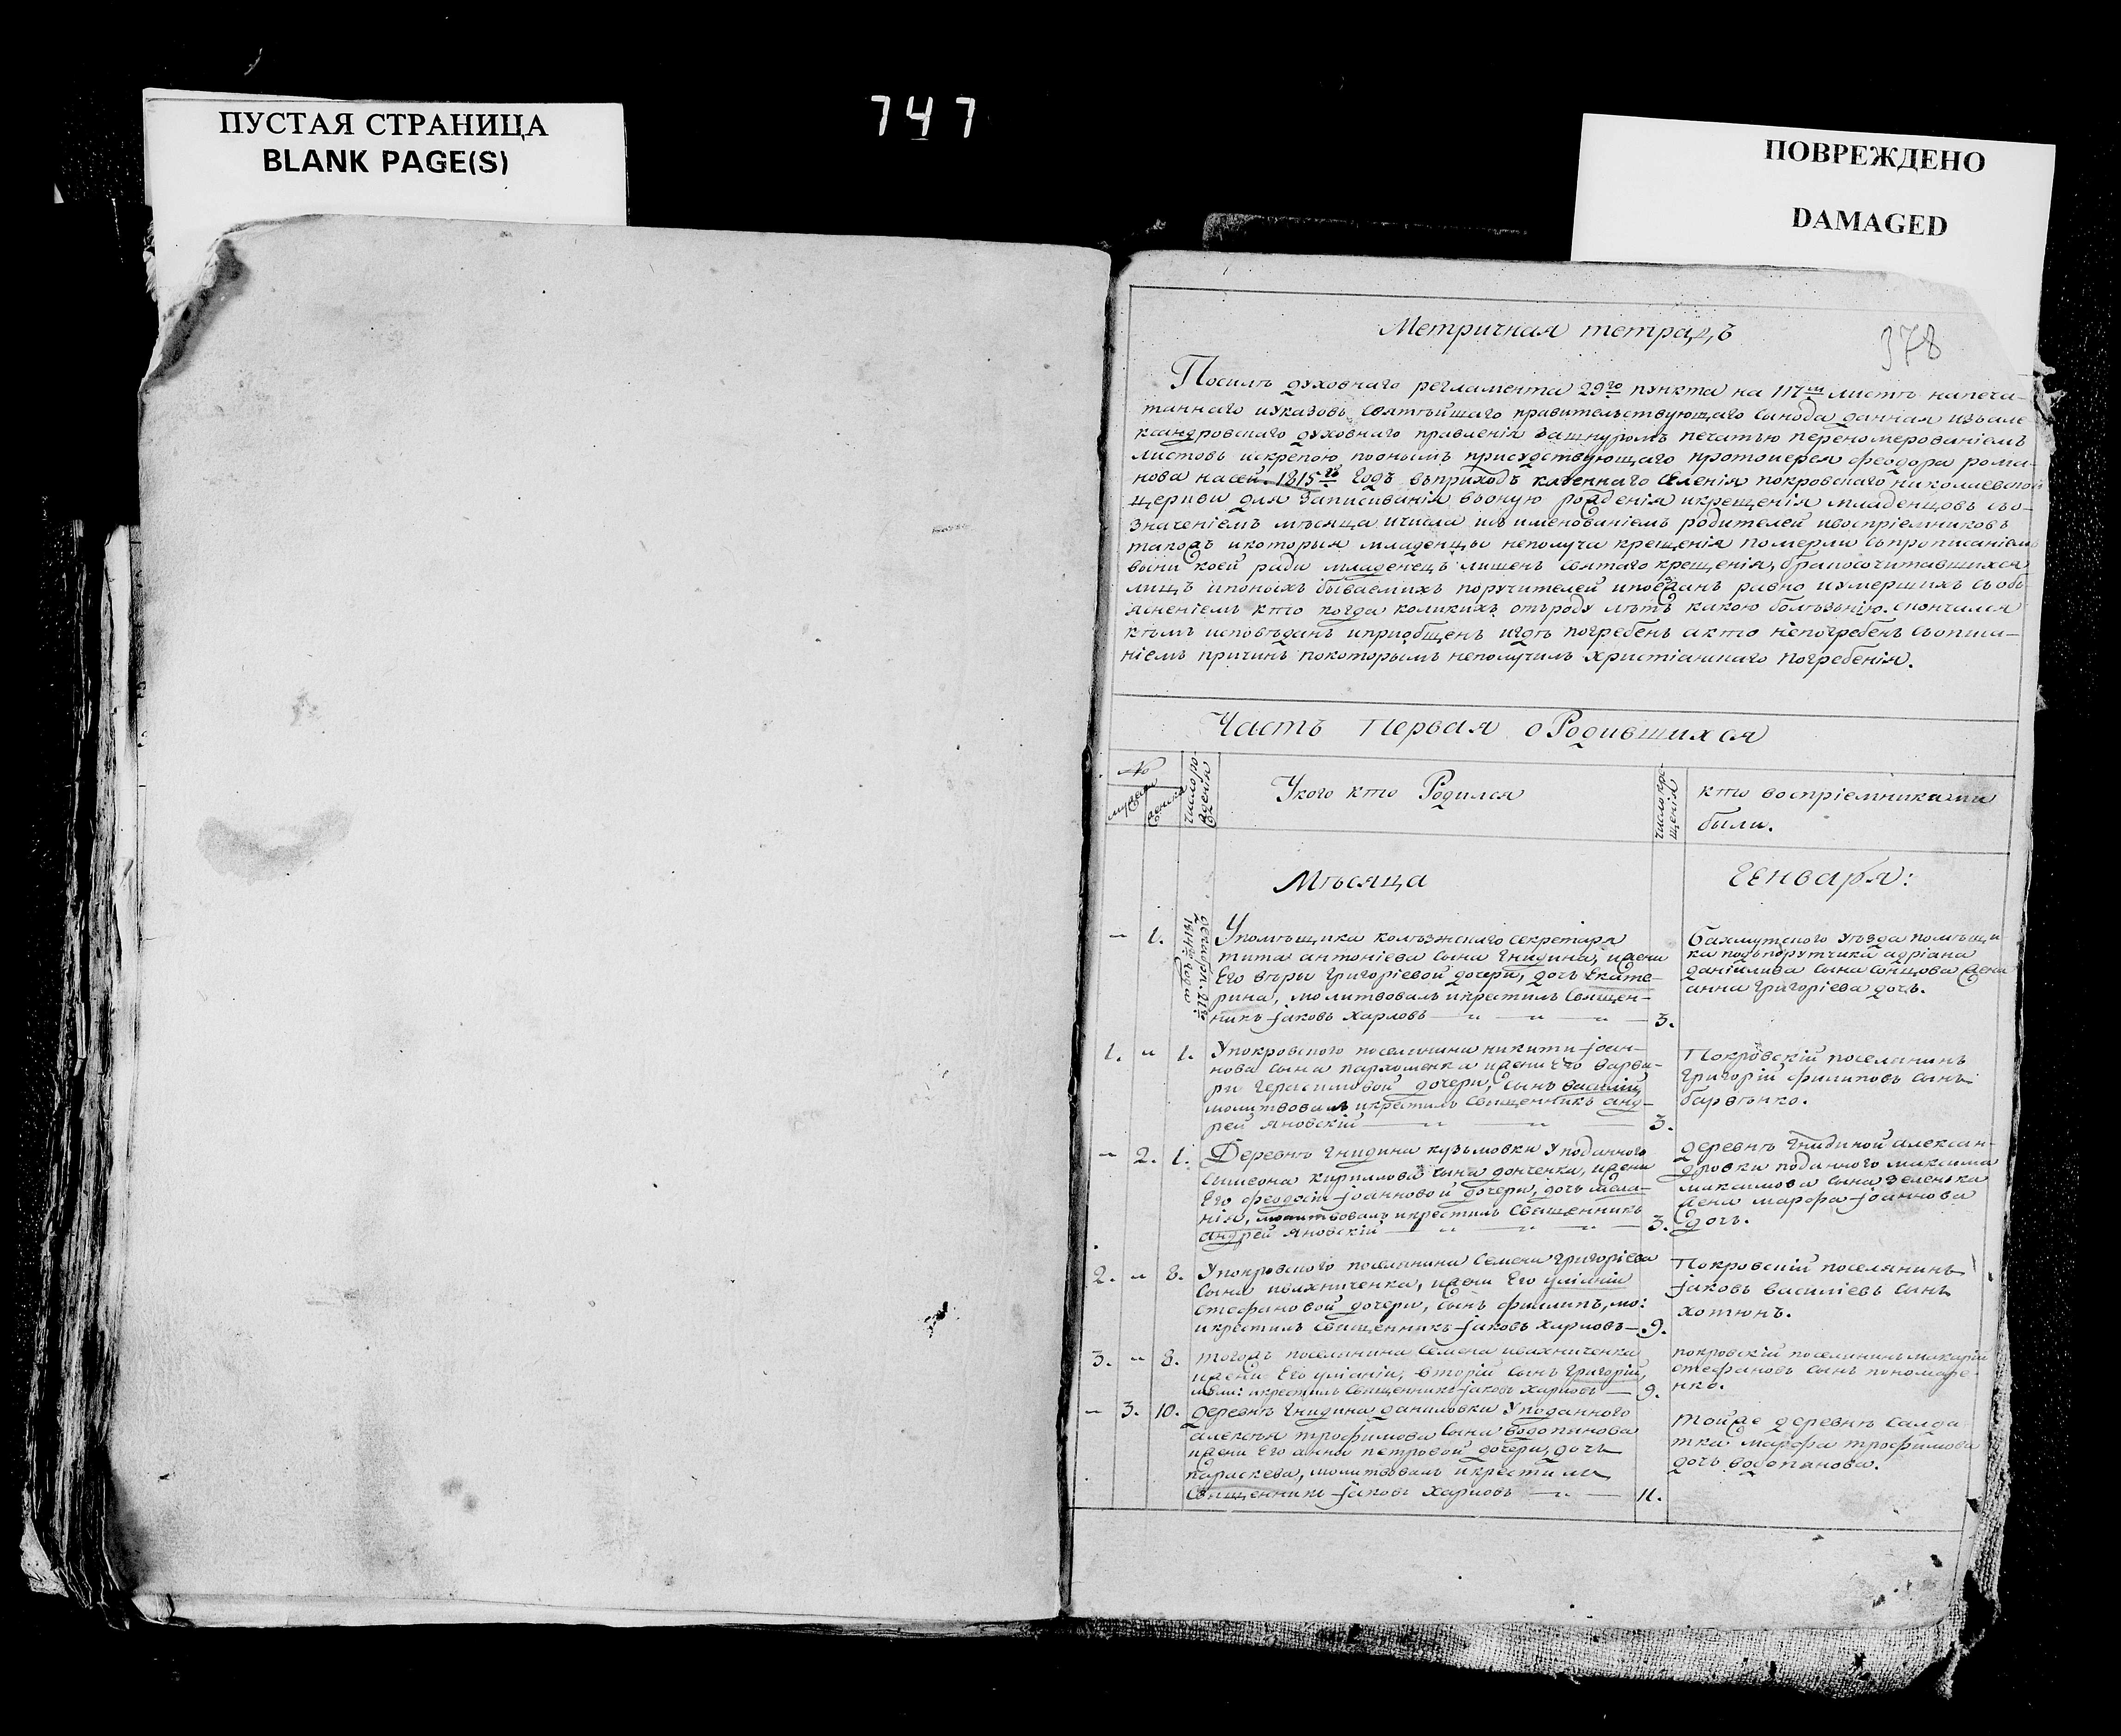 ПУСТАЯ СТРАНИЦА
BLANK PAGE(S)
747
ПОВРЕЖДЕНО
DAMAGED
378
Метричная тетрадь
Посилѣ духовнаго регламента 29го пункта на 117м листѣ напеча-
таннаго иуказовъ святѣйшаго правительствующаго сѵнода данная изъале
ксандровскаго духовнаго правленія зашнуромъ печатью переномерованіемъ
листовъ искрепою поонымъ присудствующаго протоиерея феодора рома-
нова насей 1815й годъ въприходъ казеннаго селенія покровскаго николаевской
церкви для записиванія въоную рожденія икрещенія младенцовъ съо-
значеніемъ мѣсяца ичисла ись именованіемъ родителей ивоспріемниковъ
такожъ икоторыя младенцы неполуча крещенія померли съпрописаніемъ
выни коей ради младенецъ лишенъ святаго крещенія, бракосочитавшихся
лицъ ипоныхъ бываемихъ поручителей ипоезжанъ равно иумершихъ съобъ
ясненіемъ кто когда коликихъ отъроду лѣтъ какою болѣзнію скончался
кѣмъ исповѣданъ иприобщенъ игдѣ погребенъ акто непогребенъ съописа-
ніемъ причинъ покоторымъ неполучилъ христіанскаго погребенія.
Часть Первая о Родившихся
№
мужеска
женска
число рожденія
Укого кто Родился
число крещенія
кто воспріемниками
были.
Мѣсяца Генваря:
— 1. декабря 21го 1814го года
Упомѣщика колѣжскаго секретаря
тита антоніева сына гнидина, ижени
его вѣры григоріевой дочери, дочь екате-
рина, молитвовалъ икрестилъ священ-
никъ іаковъ харловъ — „ — „ — „ — 3.
Бахмутского уѣзда помѣщи
ка подъпорутчика адріана
даніилива сына сонцова жена
анна григоріева дочь.
1. „ 1. Упокровского поселянина никити іоан-
нова сына пархоменка ижени его варва-
ри герасимовой дочери, сынъ василій,
молитвовалъ икрестилъ священникъ анд-
рей яновскій — „ — „ — 3.
Покровскій поселянинъ
григорій филиповъ сынъ
барвѣнко.
— 2. 1. Деревнѣ гнидина кузьмовки уподанного
симеона кирилова сына донченка, ижени
его феодосіи іоанновой дочери, дочь мела-
нія, молитвовалъ икрестилъ священникъ
андрей яновскій — „ — „ — „ — 3.
деревнѣ гнидиной алексан-
дровки поданного максима
максимова сына зеленска
жена марфа іоаннова
дочь.
2. „ 8. Упокровского поселянина семена григоріева
сына ивахниченка, ижени его уліяніи
стефановой дочери, сынъ филипъ, мо:
икрестилъ священникъ іаковъ харловъ — 9.
Покровскій поселянинъ
іаковъ василіевъ сынъ
хотюнъ.
3. „ 8. тогожъ поселянина семена ивахниченка
ижени его уліяніи, вторій сынъ григорій,
мол: икрестилъ священникъ іаковъ харловъ — 9.
покровскій поселянинъ макарій
стефановъ сынъ пономаре-
нко.
— 3. 10. деревнѣ гнидина даниловки уподанного
алексѣя трофимова сына водопянова
ижени его анны петровой дочери, дочь
параскева, молитвовалъ икрестилъ
священникъ іаковъ харловъ — „ — 11.
тойже деревнѣ салда
тка марфа трофимова
дочь водопянова.